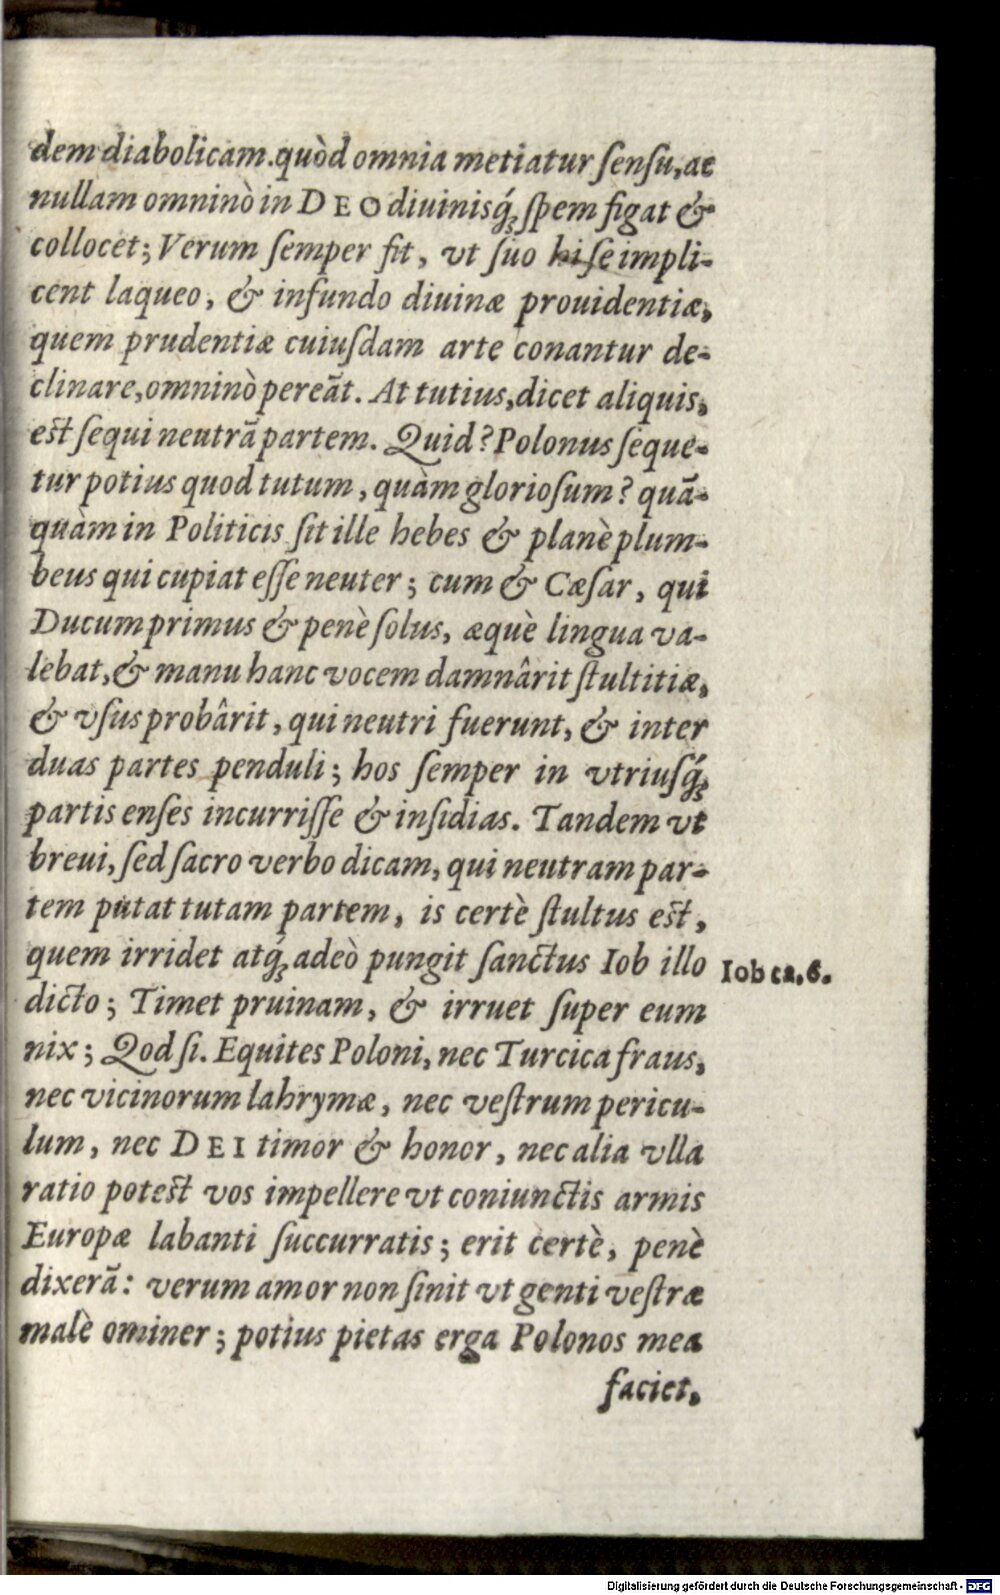 dem diabolicam. quòd omnia metiatur ſenſu, ac
nullam omninò in DEO diuinisq́; ſpem figat &
collocet; Verum ſemper fit, vt ſuo hi ſe impli-
cent laqueo, & in fundo diuinæ prouidentiæ,
quem prudentiæ cuiuſdam arte conantur de-
clinare, omninò pereãt. At tutius, dicet aliquis,
eſt ſequi neutrã partem. Quid? Polonus ſeque-
tur potius quod tutum, quàm glorioſum? quã-
quàm in Politicis ſit ille hebes & planè plum-
beus qui cupiat eſſe neuter; cum & Cæſar, qui
Ducum primus & penè ſolus, æquè lingua va-
lebat, & manu hanc vocem damnârit ſtultitiæ,
& vſus probârit, qui neutri fuerunt, & inter
duas partes penduli; hos ſemper in vtriuſq́;
partis enſes incurriſſe & inſidias. Tandem vt
breui, ſed ſacro verbo dicam, qui neutram par-
tem putat tutam partem, is certè ſtultus eſt,
quem irridet atq́; adeò pungit ſanctus Iob illo
Iob ca. 6.
dicto; Timet pruinam, & irruet ſuper eum
nix; Qod ſi. Equites Poloni, nec Turcica fraus,
nec vicinorum lahrymæ, nec veſtrum pericu-
lum, nec DEI timor & honor, nec alia vlla
ratio poteſt vos impellere vt coniunctis armis
Europæ labanti ſuccurratis; erit certè, penè
dixerã: verum amor non ſinit vt genti veſtræ
malè ominer; potius pietas erga Polonos mea
faciet,
Digitalisierung gefördert durch die Deutsche Forschungsgemeinschaft - DFG